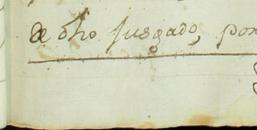 de dho Jusgado, por